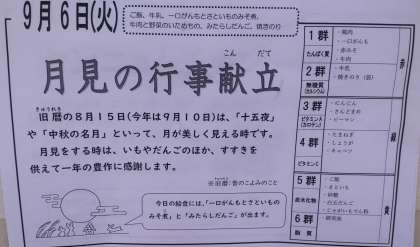 9月6日(火)
ご飯、牛乳、一口がんもとさといものみそ煮、
牛肉と野菜のいためもの、みたらしだんご、焼きのり
月見の行事献立
こん だて
きゅうれき
旧暦の8月15日(今年は9月10日)は、「十五夜」
や「中秋の名月」といって、月が美しく見える時です。
月見をする時は、いもやだんごのほか、すすきを
供えて一年の豊作に感謝します。
※旧暦:昔のこよみのこと
今日の給食には、「一口がんもとさといもの
みそ煮」と「みたらしだんご」が出ます。
1群
たんぱく質
・一口がんも
・赤みそ
・牛肉
2群
無機質
(カルシウム)
・牛乳
・焼きのり
赤
3群
ビタミンA
(カロテン)
・にんじん
・さんどまめ
・ピーマン
4群
ビタミンC
・たまねぎ
・しょうが
・キャベツ
緑
5群
炭水化物
・ご飯
・さといも
・砂糖
・白玉だんご
・じゃがいもでん粉
6群
脂質
黄